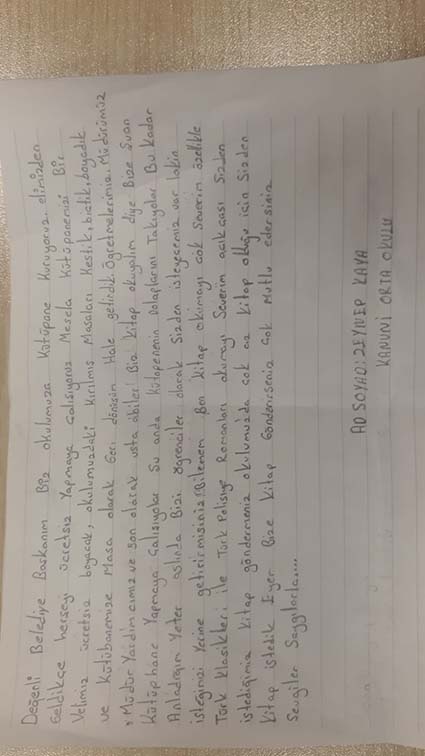 Değerli Belediye Başkanım Biz okulumuza Kütüpane Kuruyoruz. elimizden
Geldikçe herşeyi ücretsiz Yapmaye çalışıyoruz Mesela Kütüpanemizi Bir
Velimiz ücretsiz boyacak, okulumuzdaki Kırılmış Masaları Kestik, biçtik, boyadık
ve Kütübanemize Masa olarak Geri dönüşüm Hale getirdik. öğretmelerimiz. Müdürümüz
Müdür Yardımcımız ve son olarak usta abiler! Biz Kitap okuyalım diye Bize Şuan
Kütüphane Yapmaya çalışıyolar Şu anda Kütüpenemin Dolaplarını Takıyolar Bu Kadar
Anladığım Yeter aslında Bizi öğrenciler olarak Sizden isteyeceğimiz var lakin
isteğimizi Yerine getirirmisiniz Bilemem Ben Kitap okumayı çok Severim özelikle
Türk Klasikleri ile Türk Polisiye Romanları okumayı Severim açıkçası Sizden
istediğimiz Kitap göndermeniz okulumuzda çok az Kitap olduğu için Sizden
Kitap istedik Eyer Bize Kitap Gönderirseniz Çok Mutlu edersiniz
Sevgiler Saygılarla....
AD SOYAD: ZEYNEP KAYA
KANUNİ ORTA OKULU